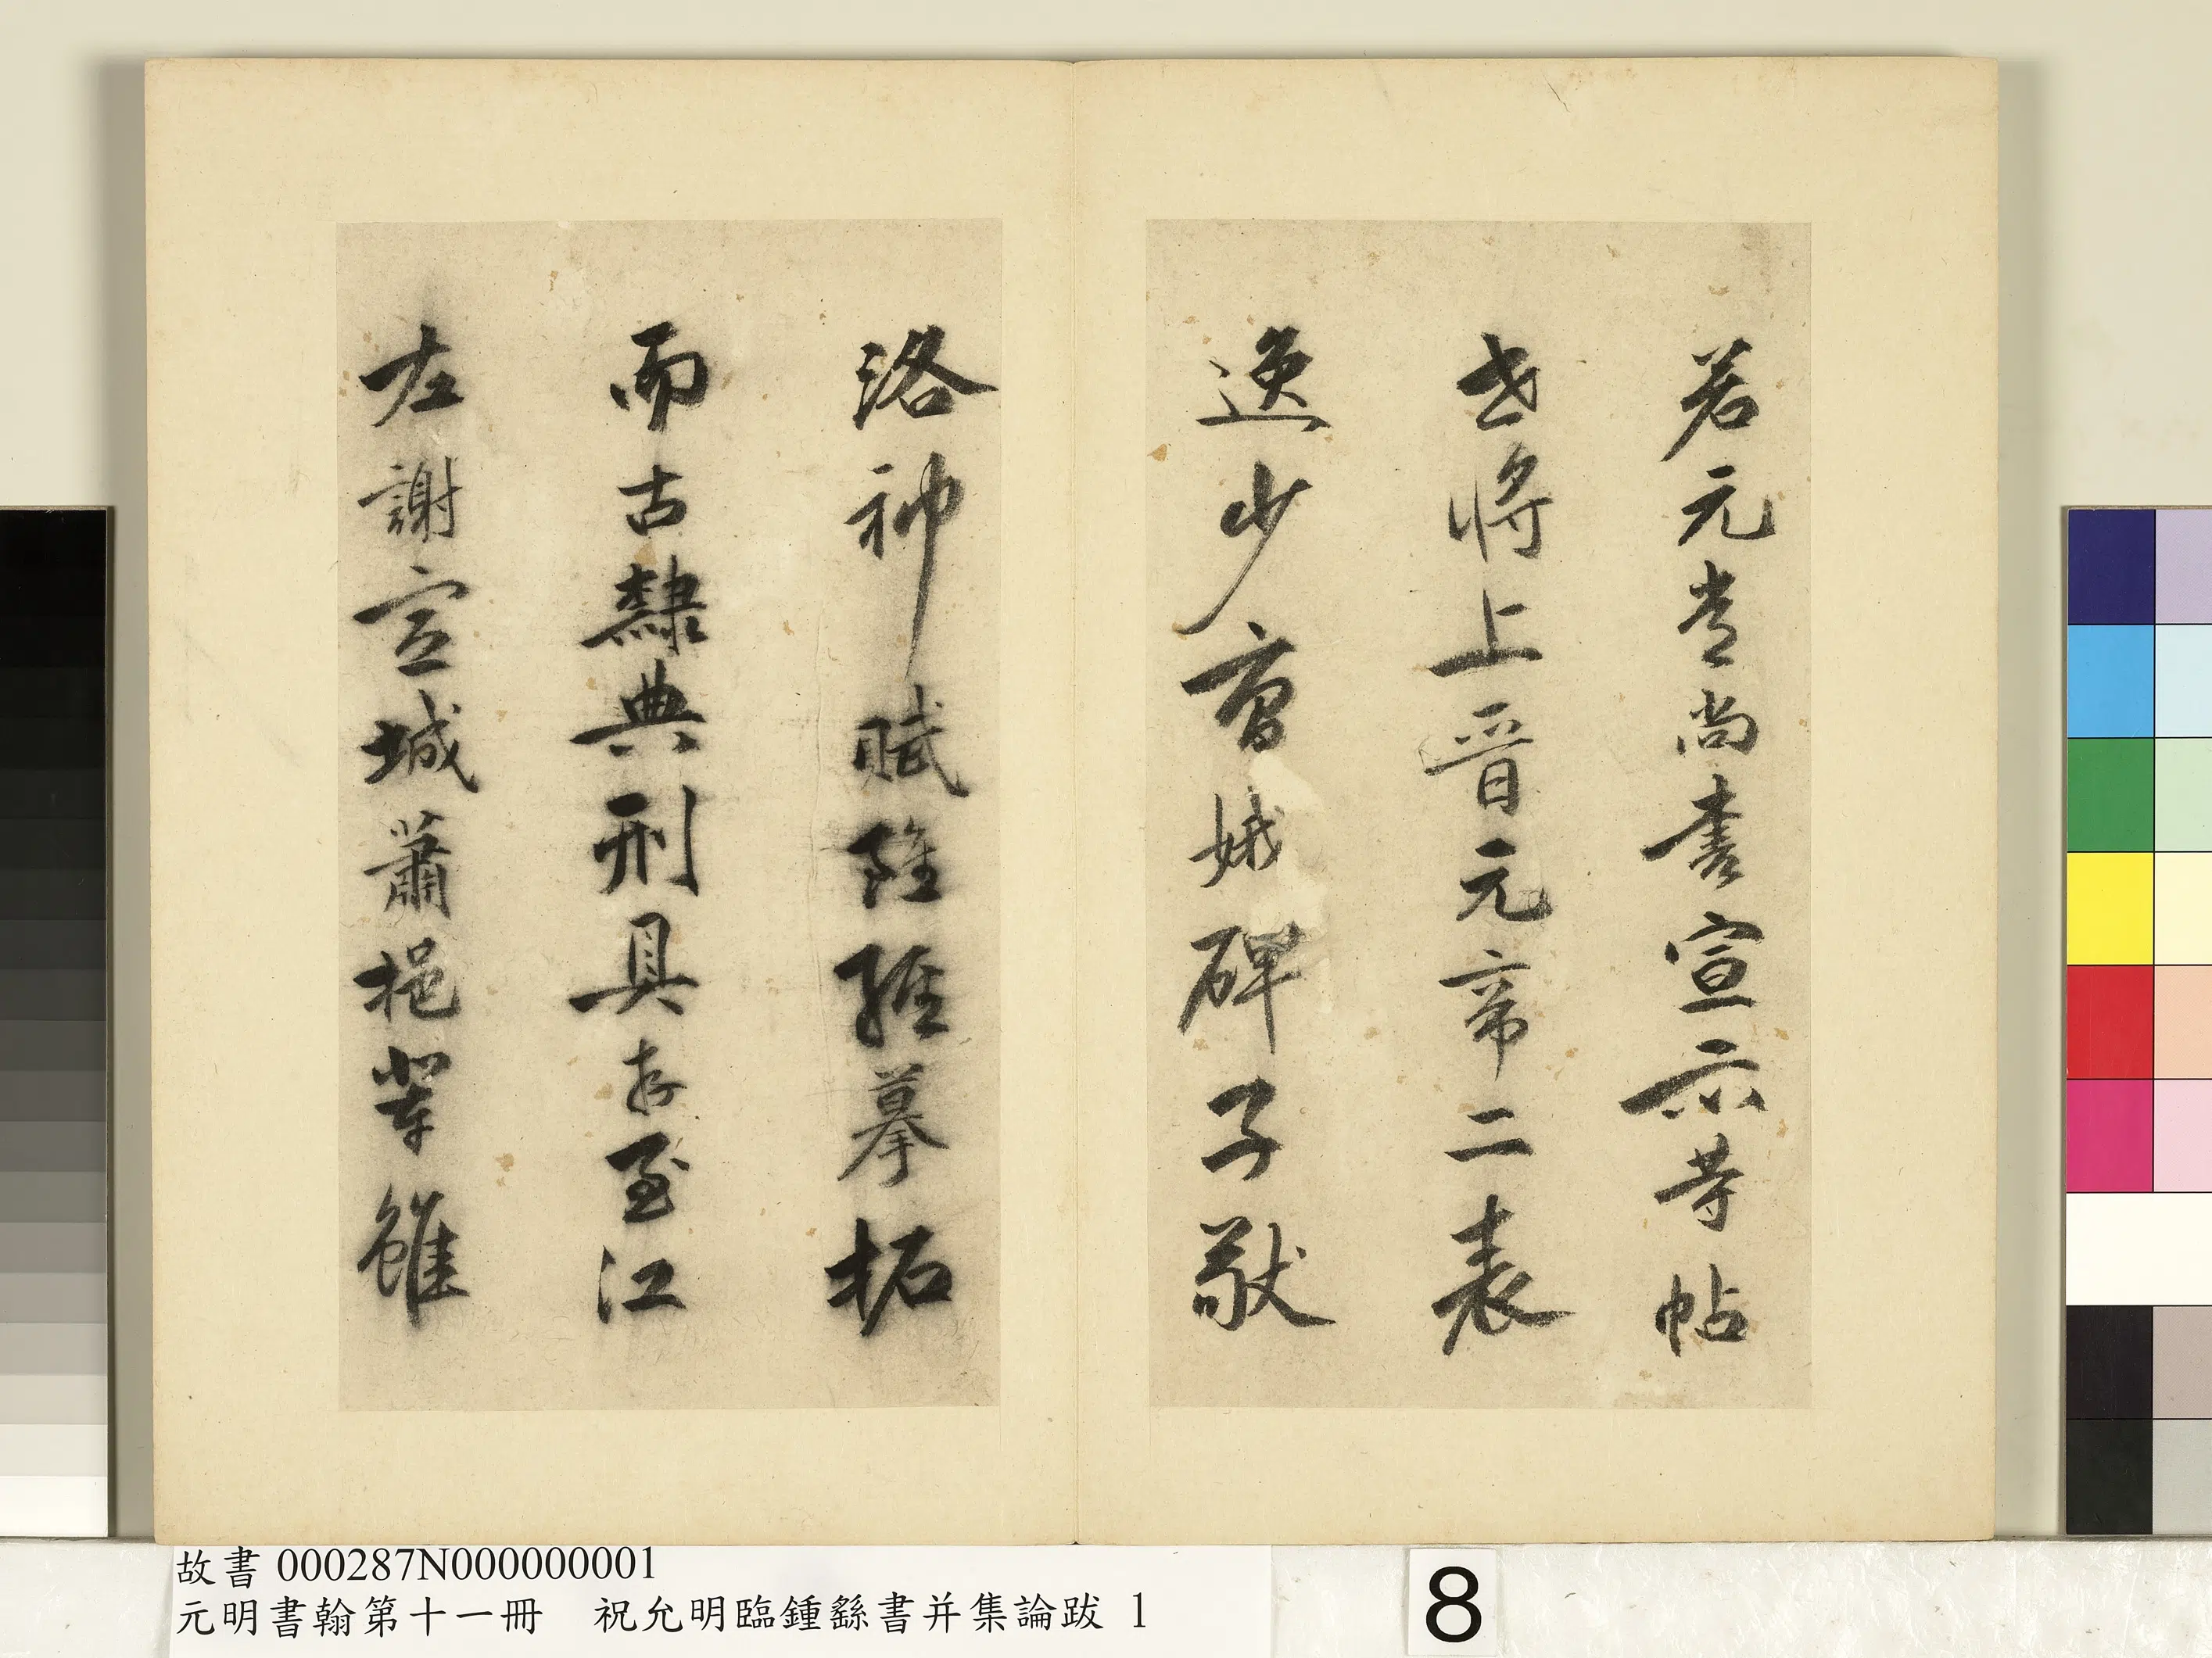 若元常尚書宣示等帖
世將上晉元帝二表
逸少曹娥碑子敬
洛神賦雖經摹拓
而古隸典刑具存至江
左謝宣城蕭挹輩雖
故書 000287N000000001
元明書翰第十一冊 祝允明臨鍾繇書并集論跋 1
8